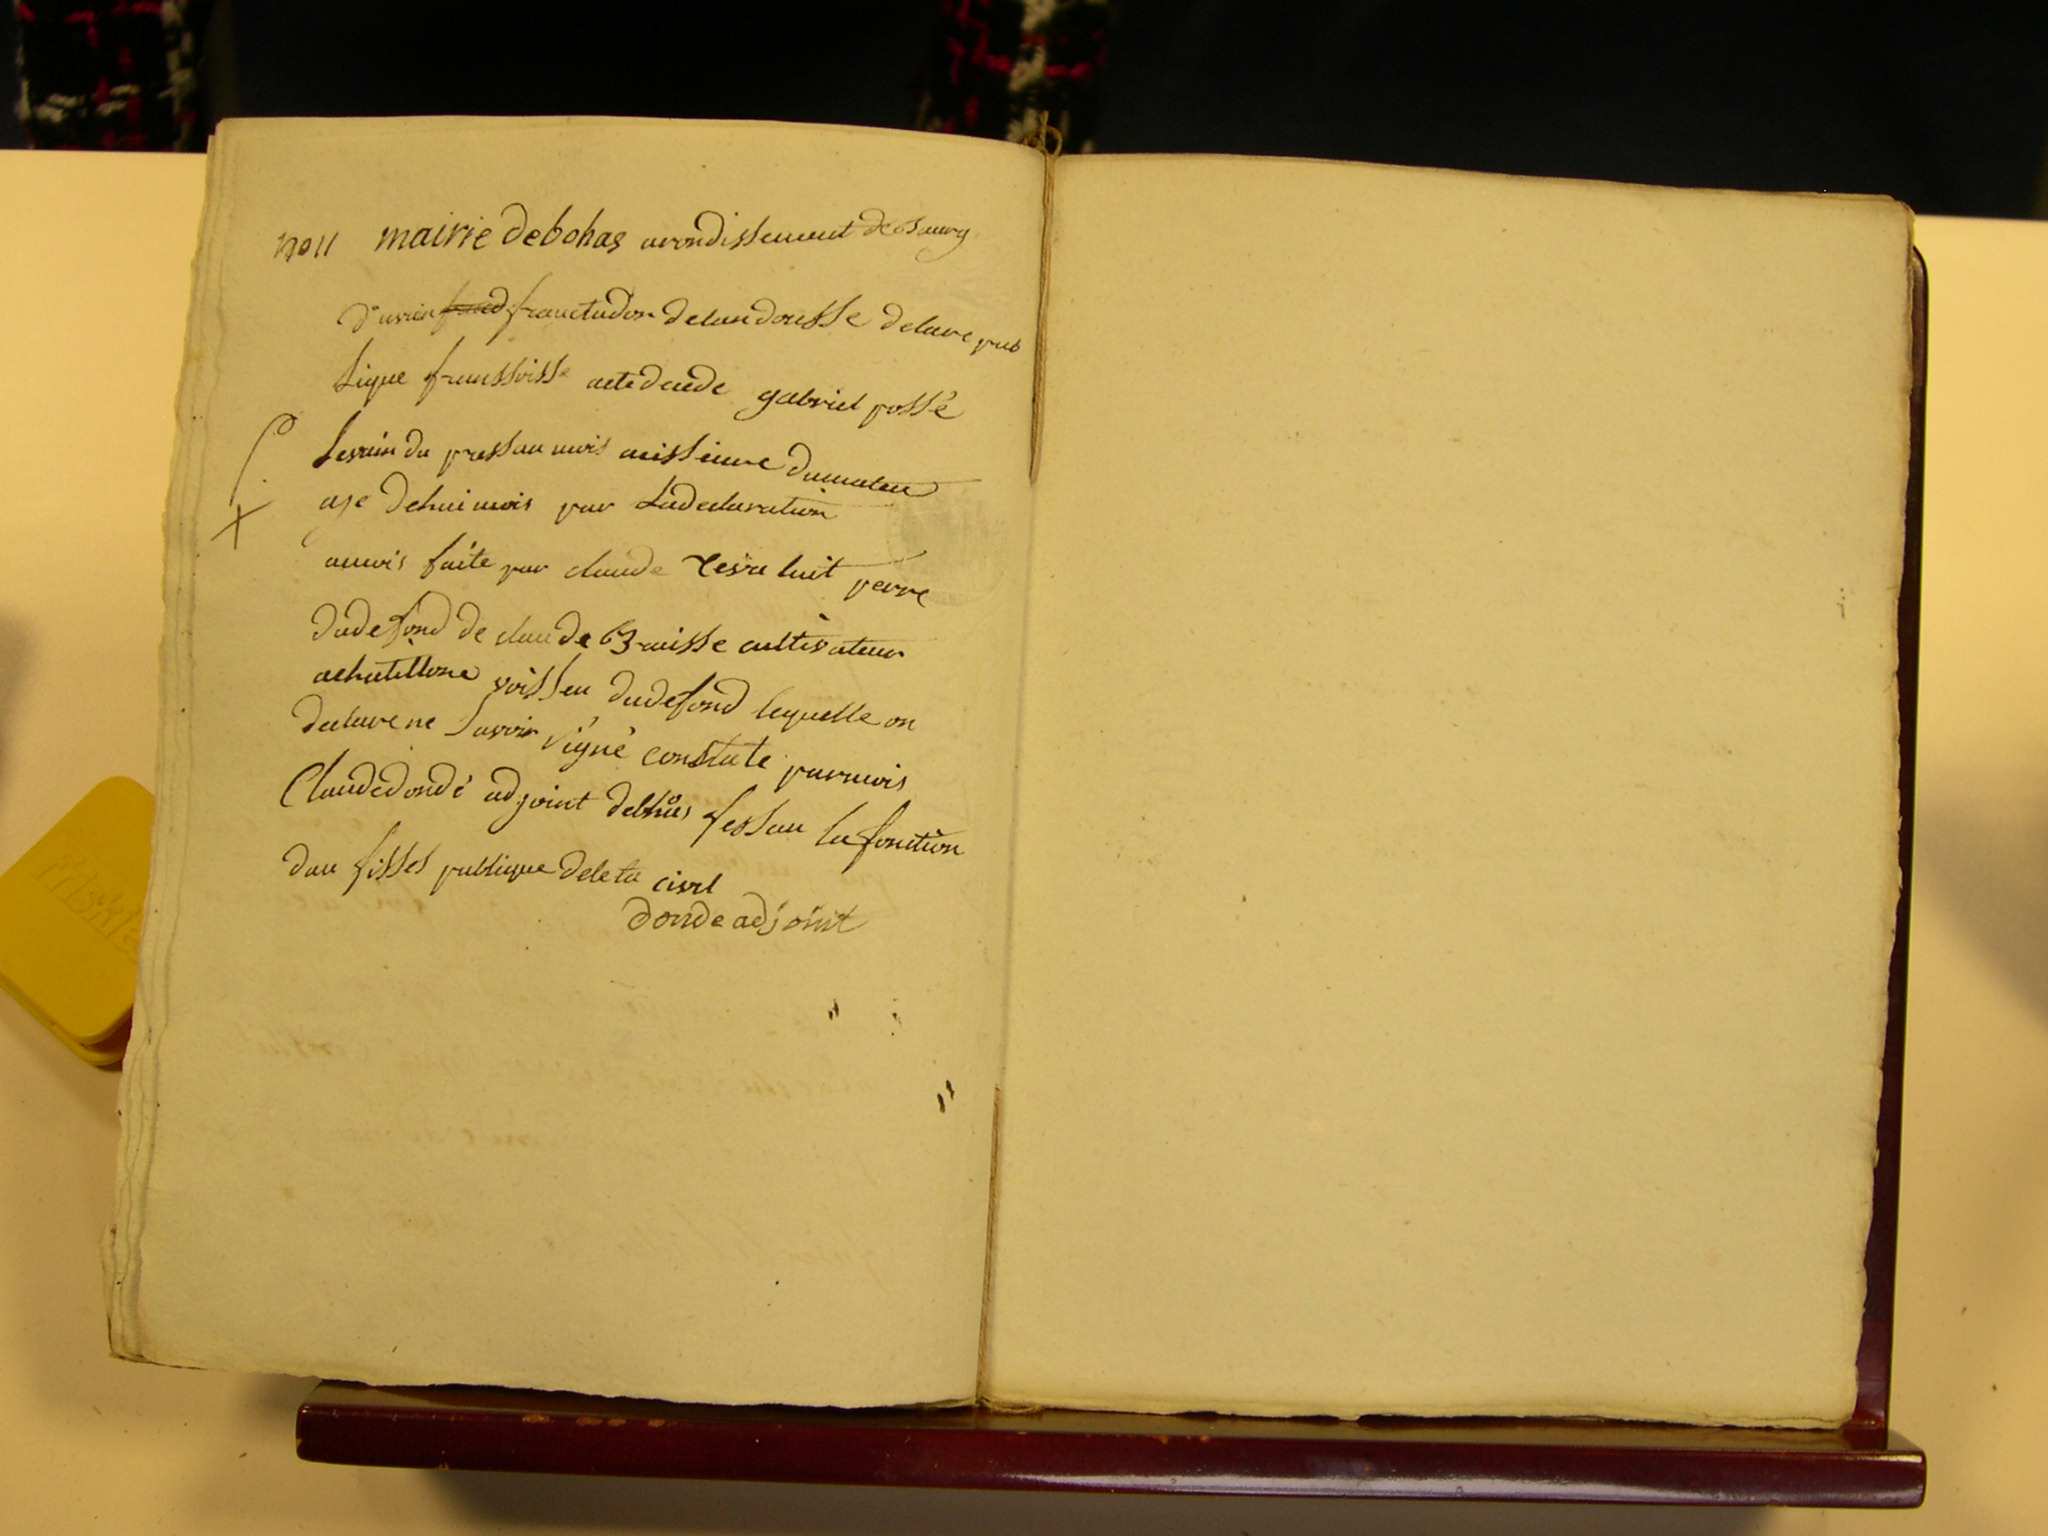 no 11 mairie debohas arondissement de Bourg
fructudor delandousse delare pub
lique franssoisse actedeude gabriel possé
levain du pressan mois aissieure dumaten
aje dehui mois par Ladeclaration
amois faite par claude perre
dudefond de claude Braisse cultivateur
achatillone voissen dudefond lequelle on
declare ne Savoir signé constate parmois
Claudedondé adjoint debhas fessan la fonction
dau fisses publique deleta civil
donde adjoint